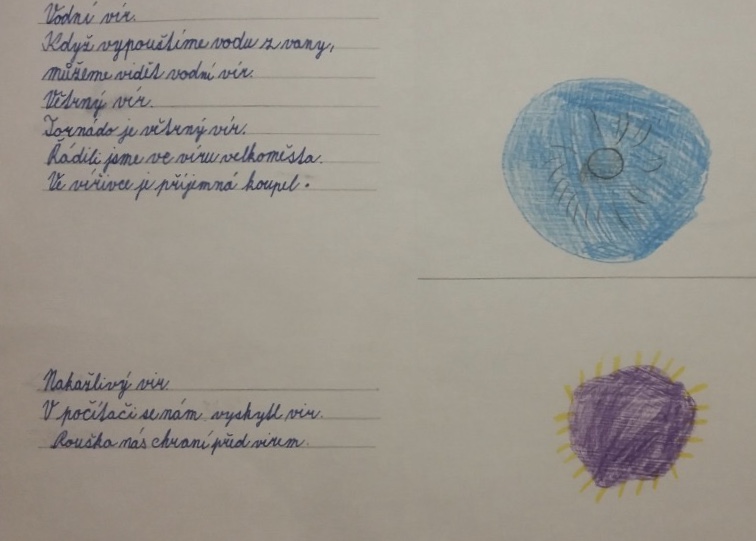 Vodní vír.
Když vypouštíme vodu z vany,
můžeme vidět vodní vír.
Větrný vír.
Tornádo je větrný vír.
Řádili jsme ve víru velkoměsta.
Ve vířivce je příjemná koupel.
Nakažlivý vir.
V počítači se nám vyskytl vir.
Rouška nás chraní před virem.